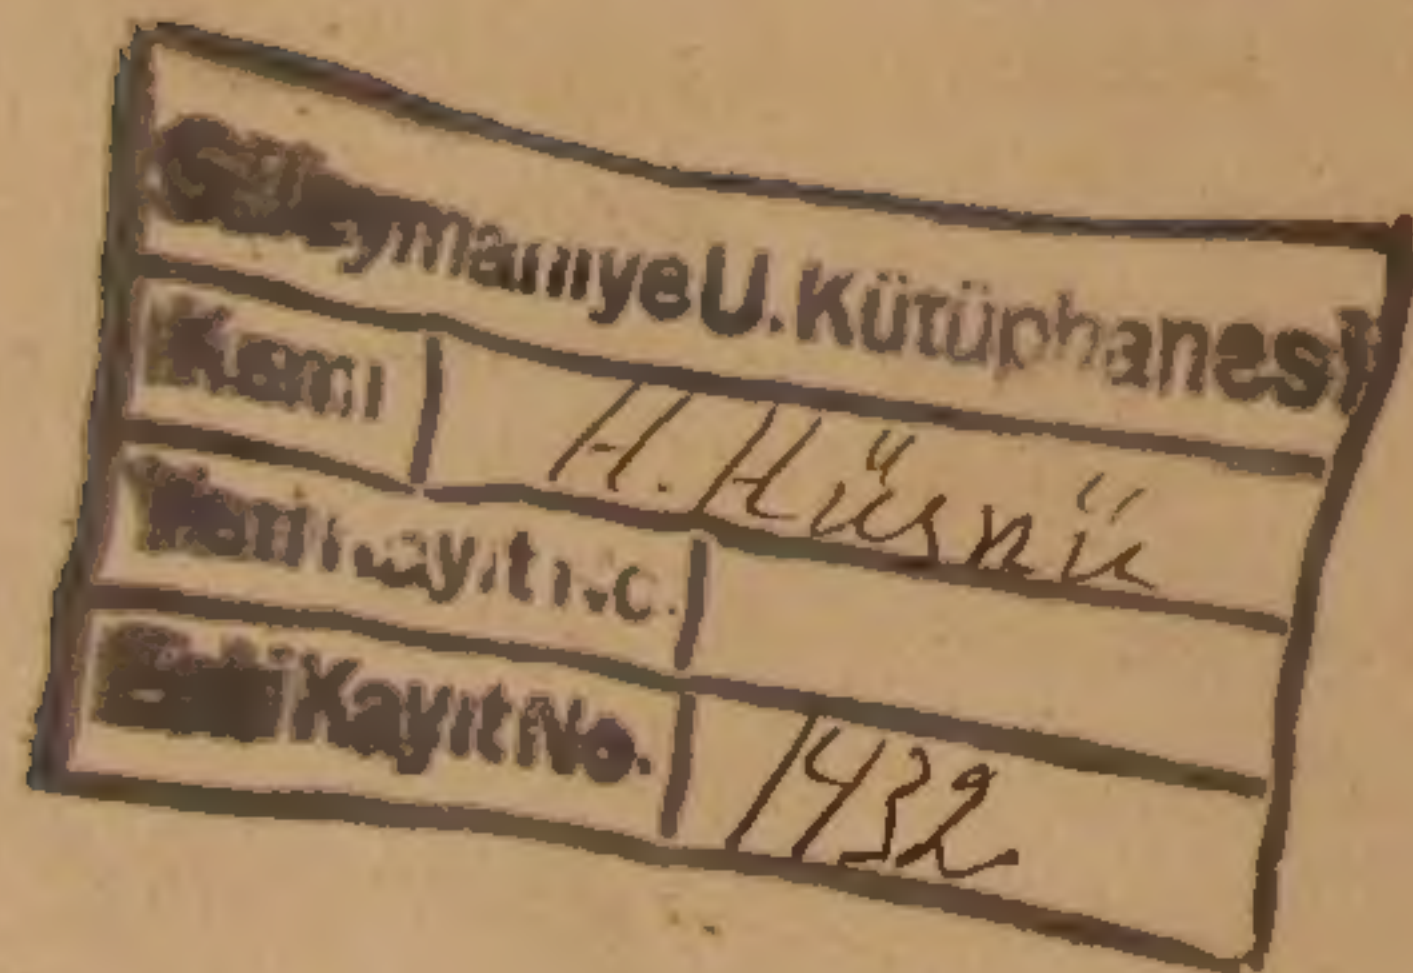 Süleymaniye U. Kütüphanesi
Kısmı H. Hüsnü
Yeni Kayıt No.
Eski Kayıt No. 1432